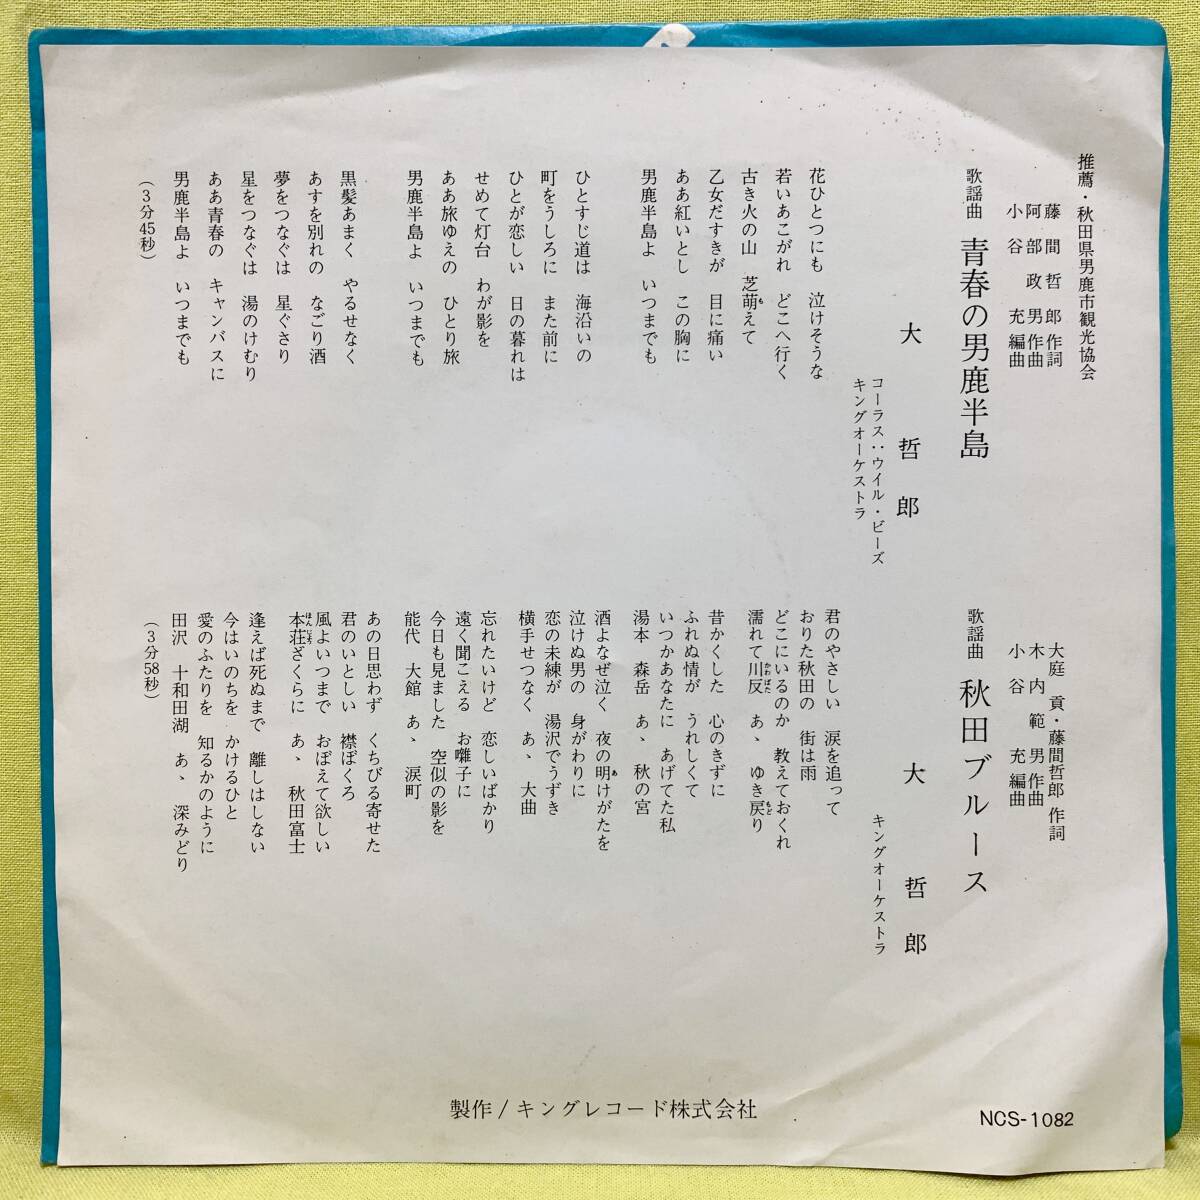 推薦・秋田県男鹿市観光協会
藤間哲郎 作詞
阿部政男 作曲
小谷充 編曲
歌謡曲 青春の男鹿半島
大 哲郎
コーラス：ウイル・ビーズ
キングオーケストラ
花ひとつにも 泣けそうな
若いあこがれ どこへ行く
古き火の山 芝萌えて
も
乙女だすきが 目に痛い
ああ紅いとし この胸に
男鹿半島よ いつまでも
ひとすじ道は 海沿いの
町をうしろに また前に
ひとが恋しい 日の暮れは
せめて灯台 わが影を
ああ旅ゆえの ひとり旅
男鹿半島よ いつまでも
黒髪あまく やるせなく
あすを別れの なごり酒
夢をつなぐは 星ぐさり
星をつなぐは 湯のけむり
ああ青春の キャンバスに
男鹿半島よ いつまでも
（3分45秒）
大庭貢・藤間哲郎 作詞
木内範男 作曲
小谷充 編曲
歌謡曲 秋田ブルース
大 哲郎
キングオーケストラ
君のやさしい 涙を追って
おりた秋田の 街は雨
どこにいるのか 教えておくれ
濡れて川反 あゝ ゆき戻り
かわばた
もど
昔かくした 心のきずに
ふれぬ情が うれしくて
いつかあなたに あげてた私
湯本 森岳 あゝ 秋の宮
酒よなぜ泣く 夜の明けがたを
あ
泣けぬ男の 身がわりに
恋の未練が 湯沢でうずき
横手せつなく あゝ 大曲
忘れたいけど 恋しいばかり
遠く聞こえる お囃子に
今日も見ました 空似の影を
能代 大館 あゝ 涙町
あの日思わず くちびる寄せた
君のいとしい 襟ぼくろ
風よいつまで おぼえて欲しい
本荘ざくらに あゝ 秋田富士
ほんじょう
逢えば死ぬまで 離しはしない
今はいのちを かけるひと
愛のふたりを 知るかのように
田沢 十和田湖 あゝ 深みどり
（3分58秒）
製作/キングレコード株式会社
NCS-1082